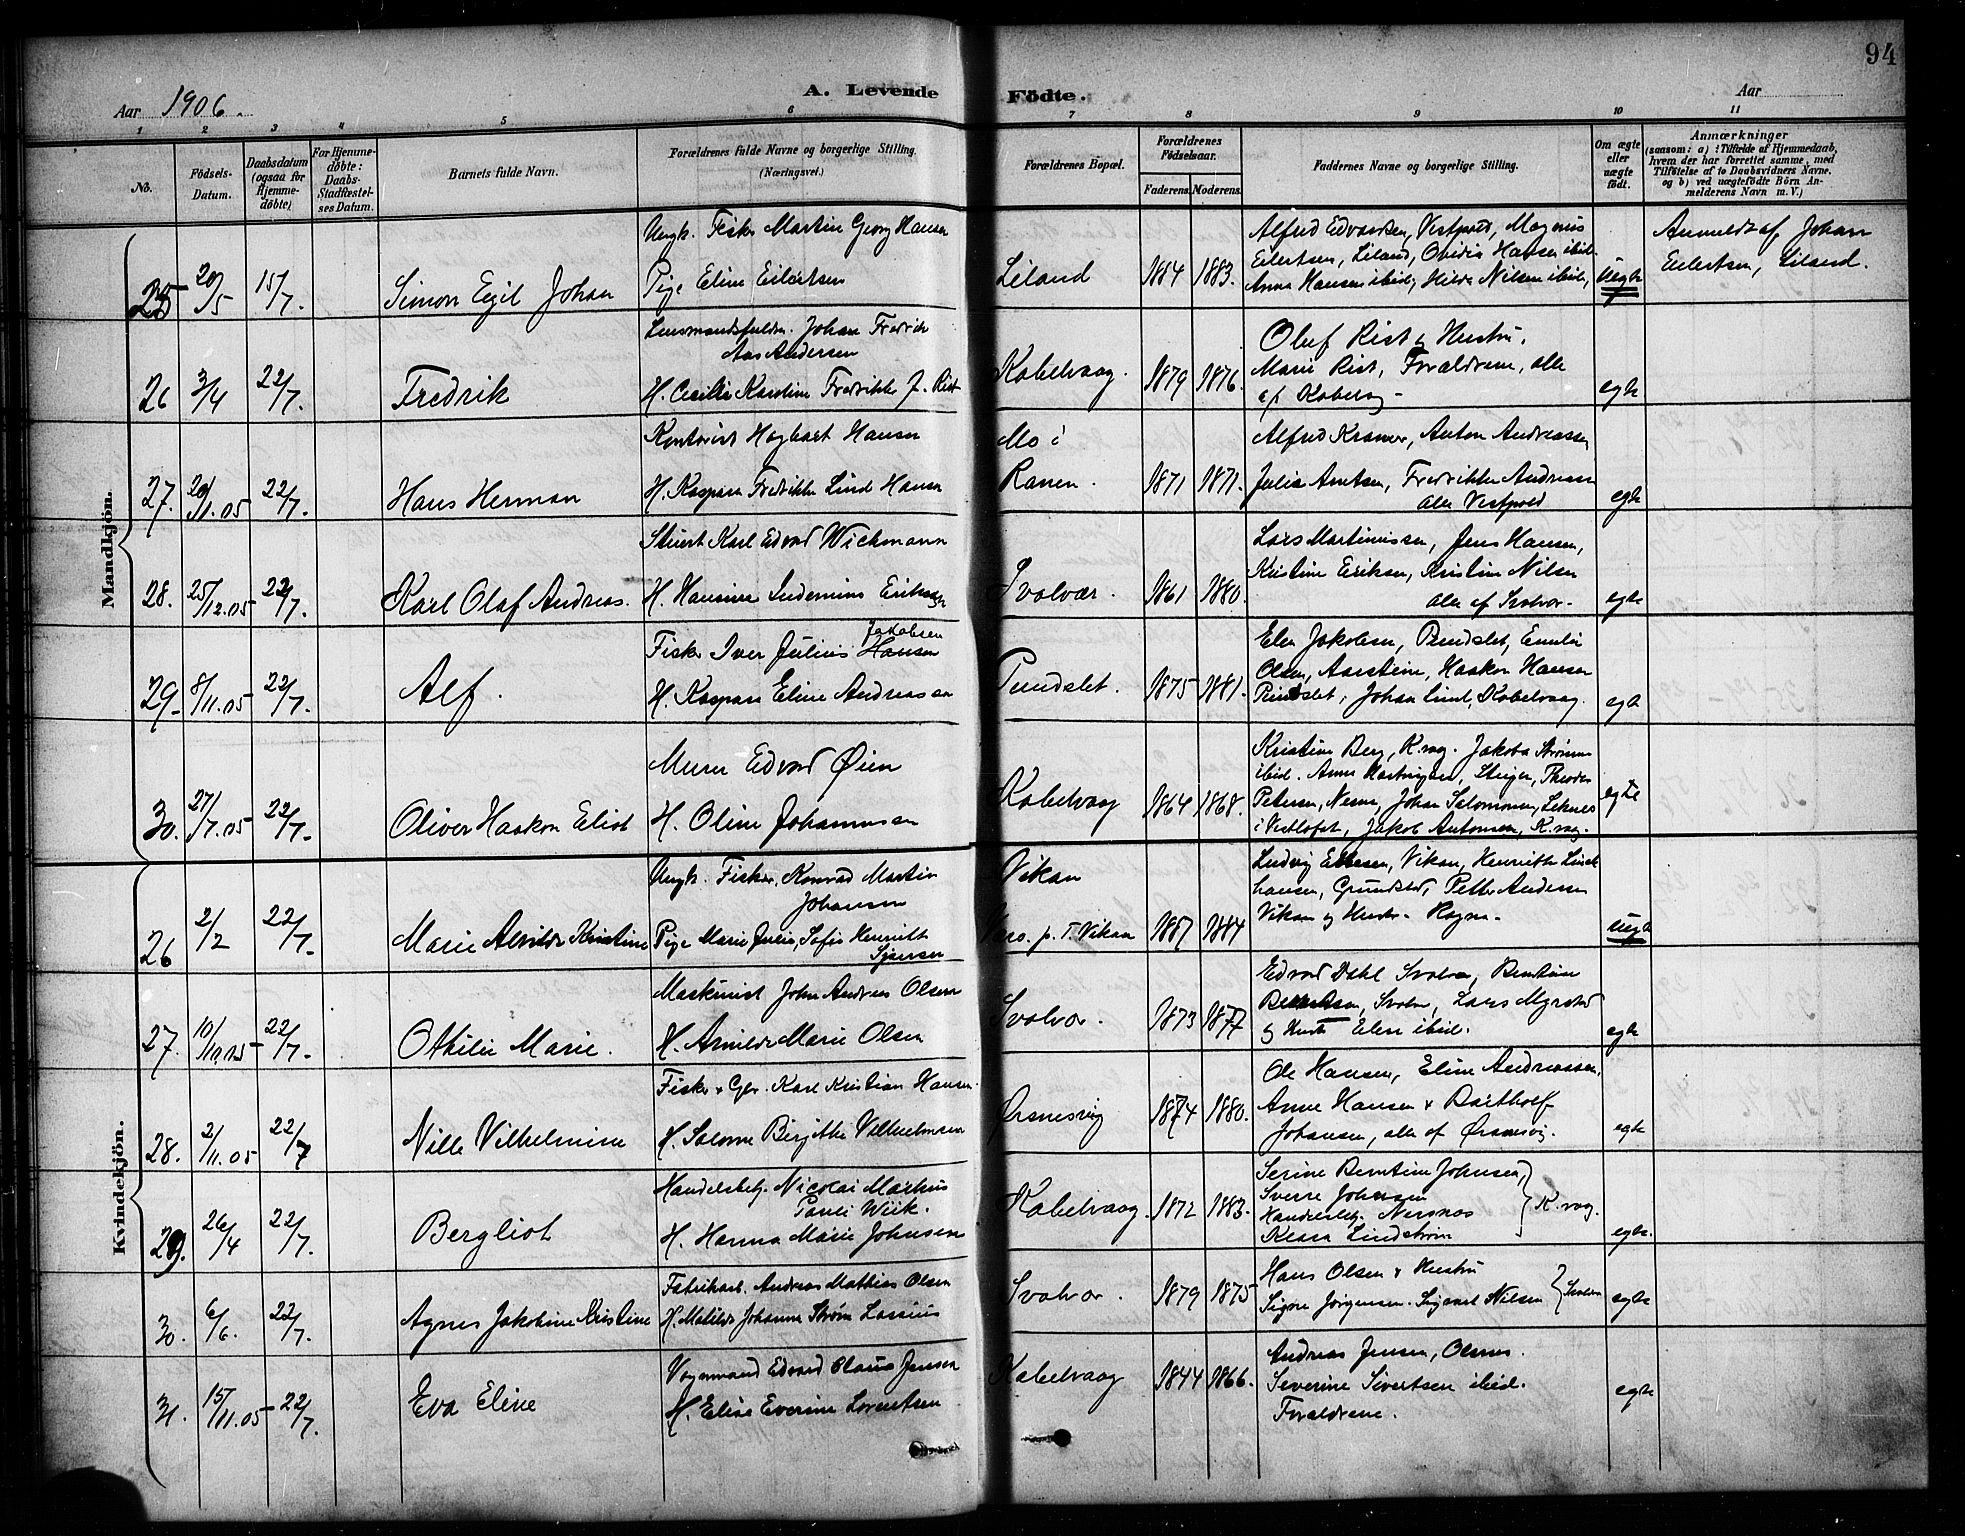 94
Aar 1906. A. Levende Födte. Aar
1 2 3 4 5 6 7 8 9 10 11
No. Födsels-Datum. Daabsdatum (ogsaa for Hjemme-döbte) For Hjemme-döbte: Daabs-Stadfæstel-ses Datum. Barnets fulde Navn. Forældrenes fulde Navne og borgerlige Stilling. (Næringsvei.) Forældrenes Bopæl. Forældrenes Födselsaar. Faderens. Moderens. Faddernes Navne og borgerlige Stilling. Om ægte eller uægte födt. Anmærkninger (saasom: a) i Tilfælde af Hjemmedaab, hvem der har forrettet samme, med Tilföielse af to Daabsvidners Navne, og b) ved uægtefödte Börn Anmelderens Navn m. V.)
Mandkjön.
Ungk. Fisker Martin Georg Hansen
Alfred Edvardsen, Vestpold, Magnus
Anmeldt af Johan
25 20/5 15/7. Simon Egil Johan Pige Eline Eilertsen Liland 1884 1883. Eilertsen, Liland, Ovidia Hansen ibid.
Anna Hansen ibid, Hilda Nilsen ibid, Uegte
Eilertsen, Liland.
Lensmandsfuldm. Johan Fredrik
Aas Andersen
Oluf Rist & Hustru.
26 3/4 22/7. Fredrik H. Cecilie Karoline Fredrikke f. Rist Kabelvaag. 1879 1876. Marie Rist, Forældrene, alle
af Kabelvag - egte
Kontorist Hagbart Hansen
Mo i
Alfred Kramer, Anton Andreassen
27. 20/1.05 22/7. Hans Herman H. Kaspara Fredrikke Lind Hansen Ranen. 1871 1871. Julie Arntsen, Fredrikke Andreassen
alle Vestpold egte
Stuert Karl Edvard Wichmann
Lars Martinussen, Jens Hansen,
28. 25/12.05 22/7. Karl Olaf Andreas. H. Hansine Indemine Eriksen Svolvær. 1861 1880. Kristine Eriksen, Kristine Nilsen
alle af Svolvær - egte
Fisker Iver Julius Jakobsen Hansen
Elen Jakobsen, Pundslet, Emilie
29- 8/11.05 22/7. Alf. H. Kaspara Eline Andreassen Pundslet. 1875 1881. Olsen, Aarsteine, Haakon Hansen
Pundslet, Johan Lind, Kabelvaag. egte
Murer Edvard Øien
Kristine Berg, K.vag. Jakoba Strømme
ibid. Anne Hartvigsen, Steigen, Theodor
30. 27/7.05 22/7. Oliver Haakon Eliot H. Oline Johannessen Kabelvaag 1864 1868. Petersen, Johan Salomonsen, Leknes
i Vestlofot, Jakob Antonsen, K.vag. egte
Kvindekjön.
Ungk. Fisker, Konrad Martin
Johansen
Vikan
Ludvig Ellesen, Vikan, Henriette Lind
hansen, Grundstad, Petter Andersen
26 2/2 22/7. Marie Alvilde Kristine Pige Marie Julie, Sofie Henriette p. T. Vikan 1887 1884 Vikan og Hustr. Ragna - uegte
Maskinist John Andreas Olsen
Edvard Dahl Svolvær, Berntine
27. 10/10.05 22/7. Othilie Marie. H. Arnilde Marie Olsen Svolvær. 1873 1877 Berntsen, Svolvær, Lars Myrstad
og Hustr Elen ibid. egte
Fisker & Gbr. Karl Kristian Hansen.
Ole Hansen, Eline Andreassen,
28. 2/11.05 22/7 Nille Vilhelmine H. Salome Birgithe Vilhelmsen Ørsnesvig 1874 1880. Anne Hansen & Bartholf
Johansen, alle af Ørsnesvig. egte
Handelsbetj. Nicolai Markus
Pauli Wiik.
Serine Berntine Johnsen,
Sverre Johansen
29. 26/4 22/7. Bergliot H. Hanna Marie Johnsen Kabelvaag. 1872 1883. Handelsbetj. Nersnæs
Klara Lindstrøm } K.vag. egte.
Fabrikarb. Andreas Mathias Olsen
Hans Olsen & Hustru
30. 6/6. 22/7. Agnes Jakobine Kristine H. Matilde Johanne Strøm Lassius Svolvær. 1879 1875 Signe Jørgensen. Sigvart Nilsen } Svolvær egte
Vognmand Edvard Claus Jensen
Andreas Jensen, Olsnes.
31. 15/11.05 22/7. Eva Eline H. Elise Everine Lorentsen Kabelvaag 1844 1866. Severine Sivertsen ibid.
Forældrene. egte